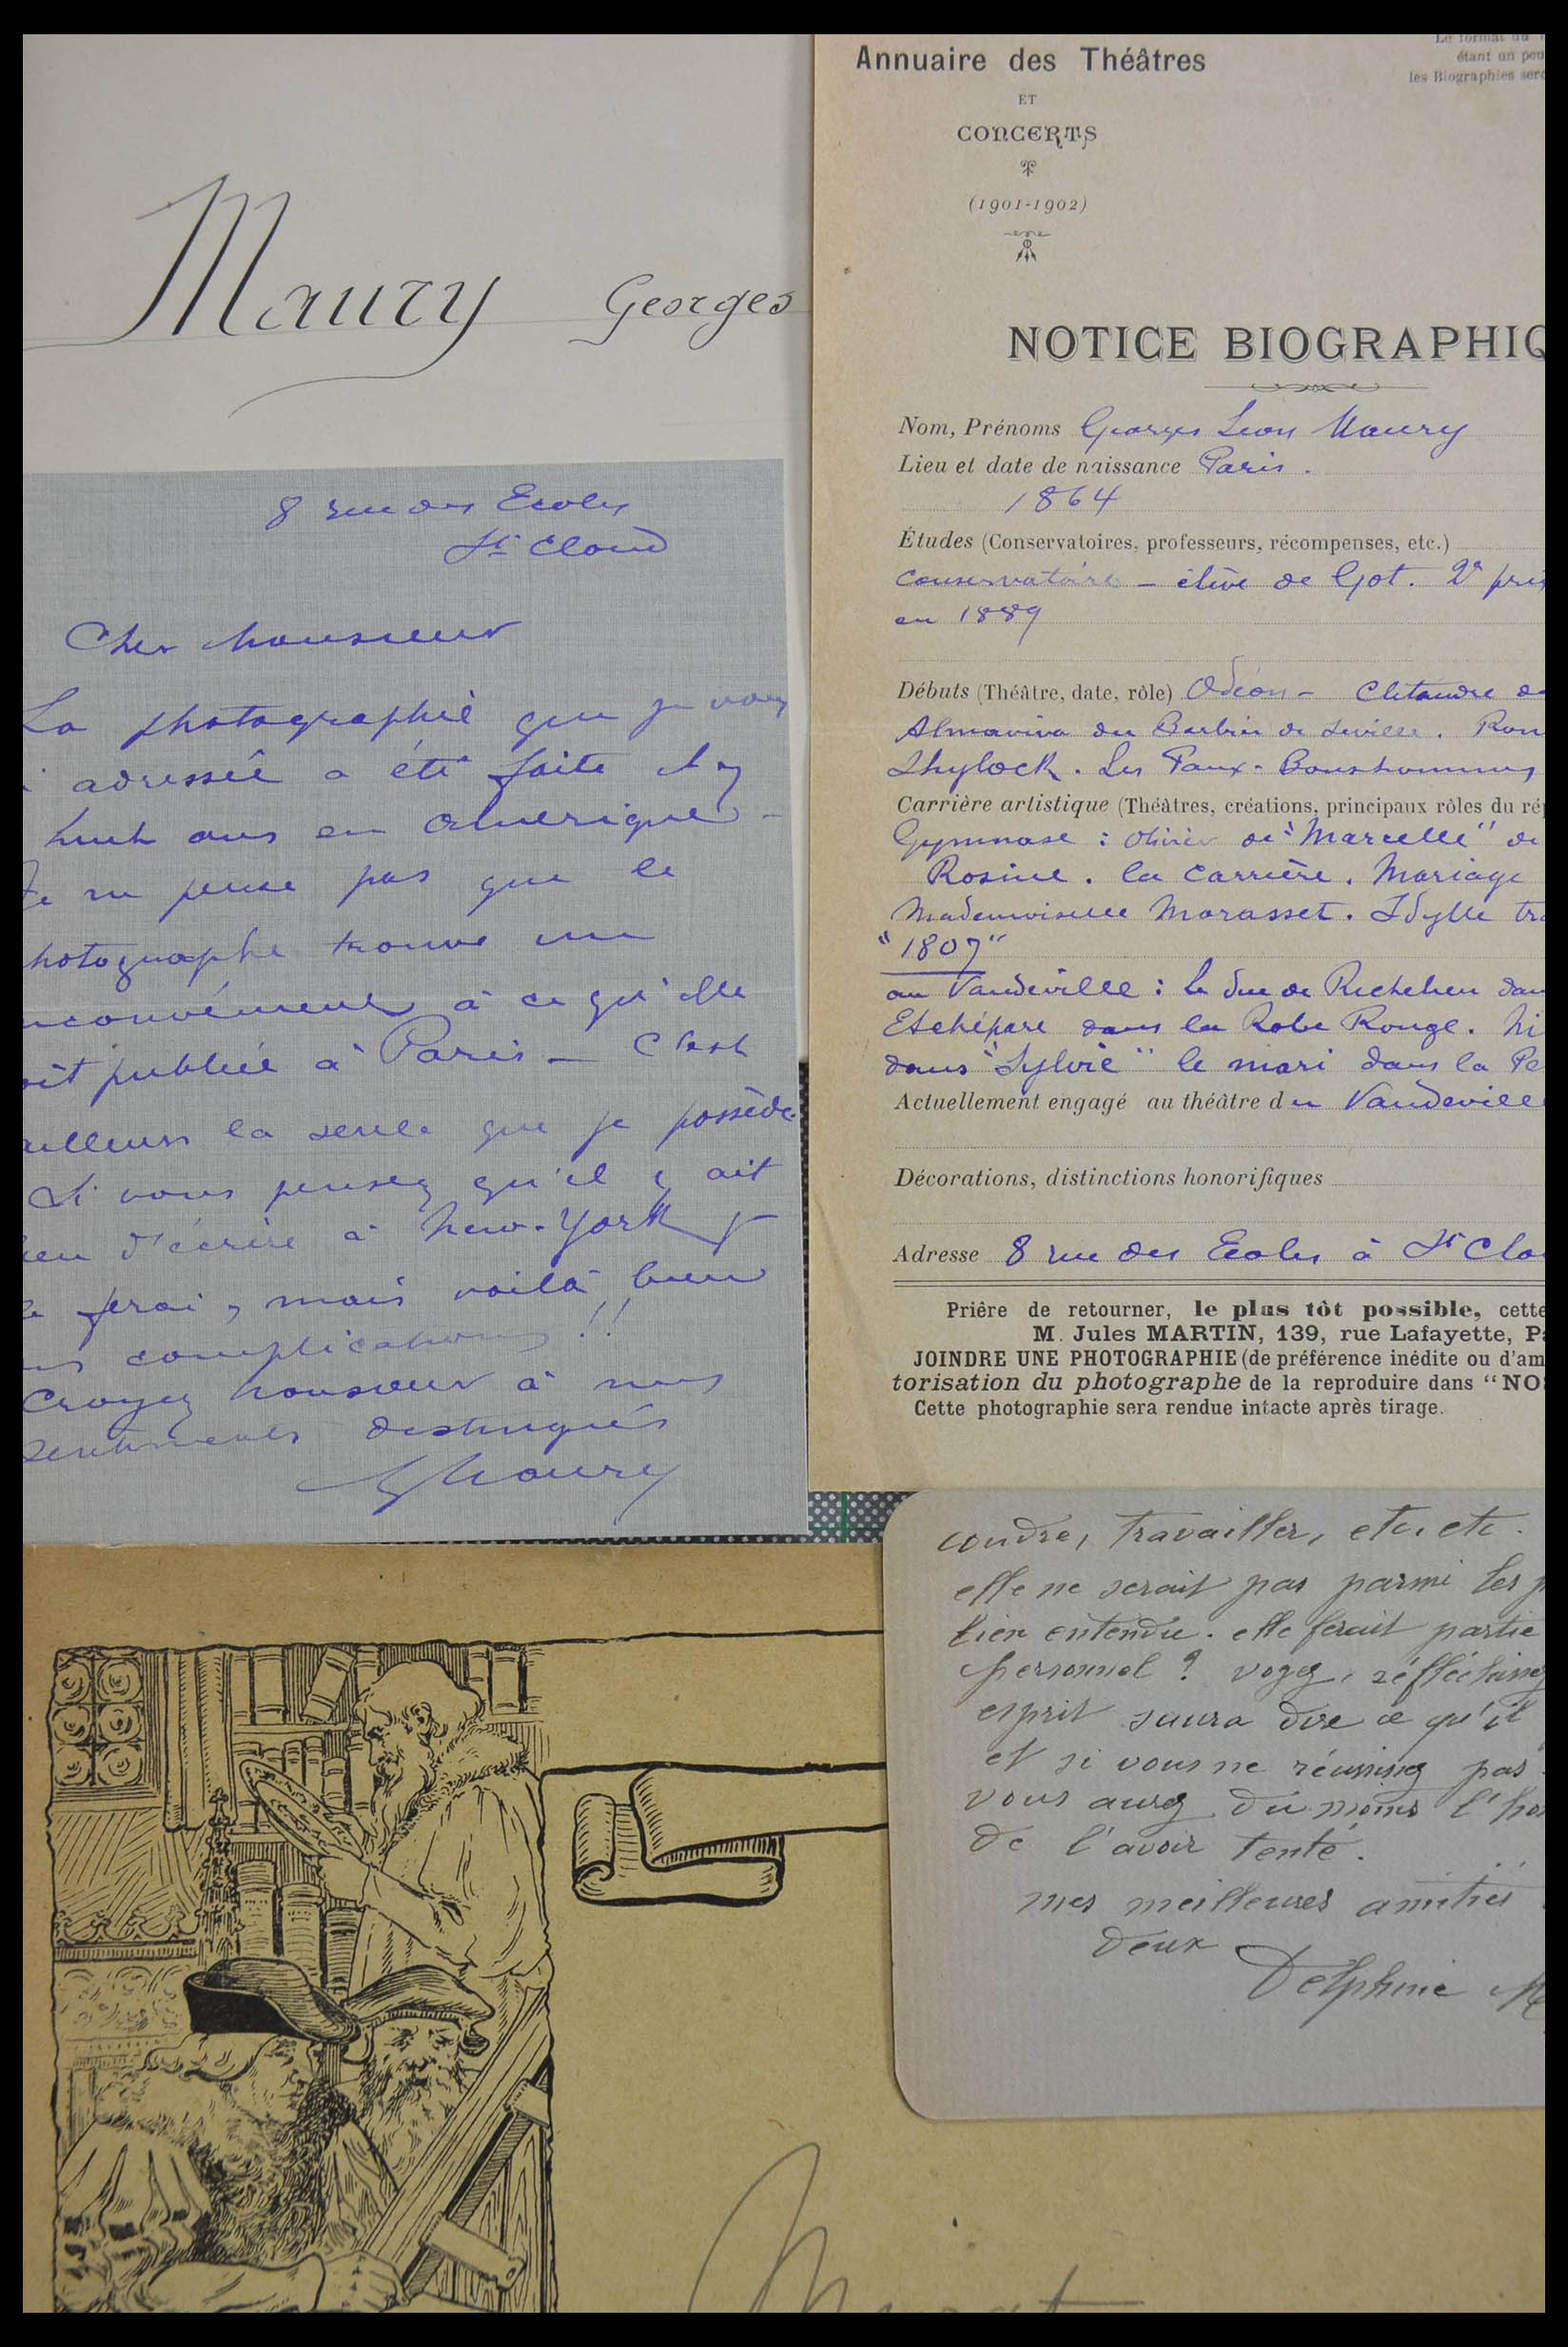 Maury Georges
8 rue des Ecoles
St Cloud
Cher Monsieur
La photographie que je vous
ai adressée a été faite il y
huit ans en Amérique -
Je ne pense pas que le
hotographe trouve un
nconvénient à ce qu'elle
oit publiée à Paris - C'est
ailleurs la seule que je possède.
Si vous pensez qu'il y ait
ieu d'écrire à New-York je
le ferai, mais voilà bien
des complications !!
Croyez Monsieur à mes
sentiments distingués
GMaury
Le format du
étant un peu
les Biographies sero
Annuaire des Théâtres
ET
CONCERTS
(1901-1902)
NOTICE BIOGRAPHIQ
Nom, Prénoms Georges Léon Maury
Lieu et date de naissance Paris.
1864
Études (Conservatoires, professeurs, récompenses, etc.)
Conservatoire - élève de Got. 2e prix
en 1889
Débuts (Théâtre, date, rôle) Odéon - Clitandre de
Almaviva du Barbier de Séville. Rom
Shylock. Les Faux-Bonshommes
Carrière artistique (Théâtres, créations, principaux rôles du rép
Gymnase : Olivier de "Marcelle" de
Rosine. la Carrière. Mariage
Mademoiselle Morasset. Idylle tra
"1807"
au Vaudeville : le duc de Richelieu dan
Etchépare dans la Robe Rouge.
dans "Sylvie" le mari dans la
Actuellement engagé au théâtre du Vaudeville
Décorations, distinctions honorifiques
Adresse 8 rue des Ecoles à St Clo
Prière de retourner, le plus tôt possible, cette
M. Jules MARTIN, 139, rue Lafayette, Pa
JOINDRE UNE PHOTOGRAPHIE (de préférence inédite ou d'am
torisation du photographe de la reproduire dans "NO
Cette photographie sera rendue intacte après tirage.
coudre, travailler, etc. etc.
elle ne serait pas parmi les p
bien entendu. elle ferait partie
personnel ? voyez, réfléchissez
esprit saura dire ce qu'il
et si vous ne réussissez pas
vous aurez du moins l'hon
de l'avoir tenté.
mes meilleures amitiés
deux
Delphine M
Murat